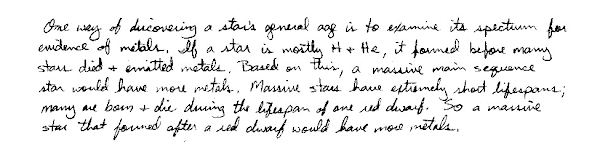 One way of discovering a star's general age is to examine its spectrum for
evidence of metals. If a star is mostly H + He, it formed before many
stars died + emitted metals. Based on this, a massive main sequence
star would have more metals. Massive stars have extremely short lifespans;
many are born + die during the lifespan of one red dwarf. So a massive
star that formed after a red dwarf would have more metals.